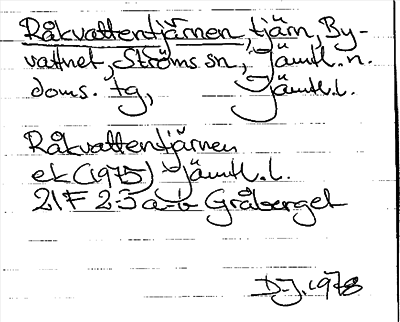 Råkvattentjärnen, tjärn, By-
vattnet, Ströms sn, Jämtl. n.
doms. tg, Jämtl. l.
Råkvattentjärnen
ek (1975) Jämtl. l.
21F 2-3 a-b Gråberget
D-J. 1978